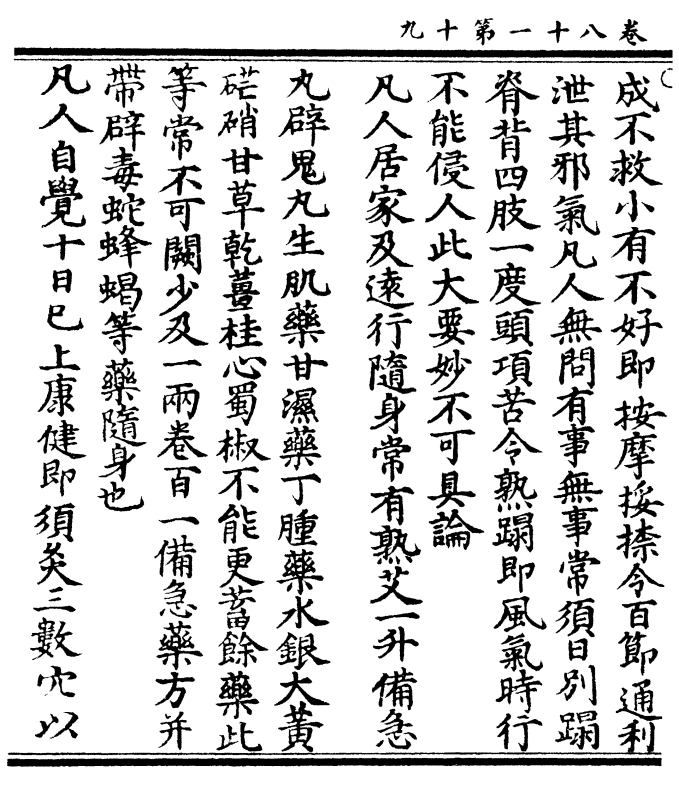 卷八十一第十九
成不救小有不好即按摩挼捺令百節通利
泄其邪氣凡人無問有事無事常須日別蹋
脊背四肢一度頭項苦令熟蹋即風氣時行
不能侵人此大要妙不可具論
凡人居家及遠行隨身常有熟艾一升備急
丸辟鬼丸生肌藥甘濕藥丁腫藥水銀大黃
硭硝甘草乾薑桂心蜀椒不能更蓄餘藥此
等常不可闕少及一兩卷百一備急藥方并
帶辟毒蛇蜂蝎等藥隨身也
凡人自覺十日已上康健即須灸三數穴以